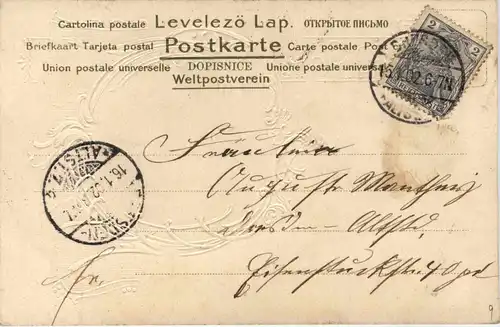 Cartolina postale Levelező Lap. ОТКРЫТОЕ ПИСЬМО
Briefkaart Tarjeta postal Postkarte Carte postale Post
Union postale universelle DOPISNICE Unione postale universale
Weltpostverein
2 2
15.1.02.6-7N.
ALTST. 4
16.1.02
Fräulein
Auguste
Dresden - Altstd.
Eisenstuckstr. 40 pt
Hr.